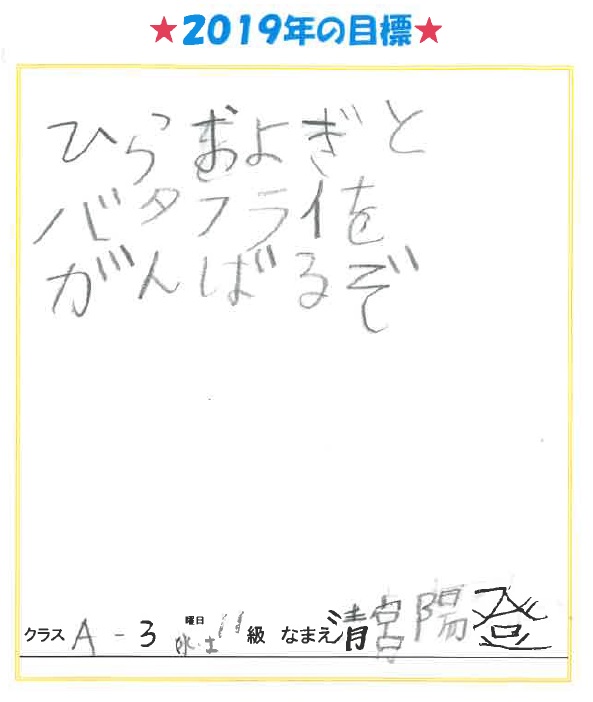 ★2019年の目標★
ひらおよぎと
バタフライを
がんばるぞ
クラス A-3 曜日 水・土 11級 なまえ 清宮陽登